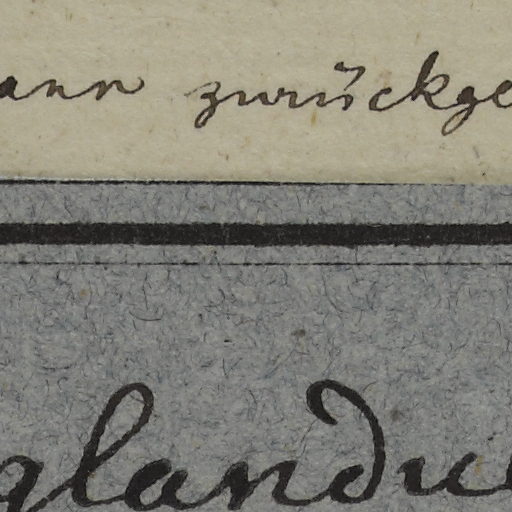 ann zurückge
glandu